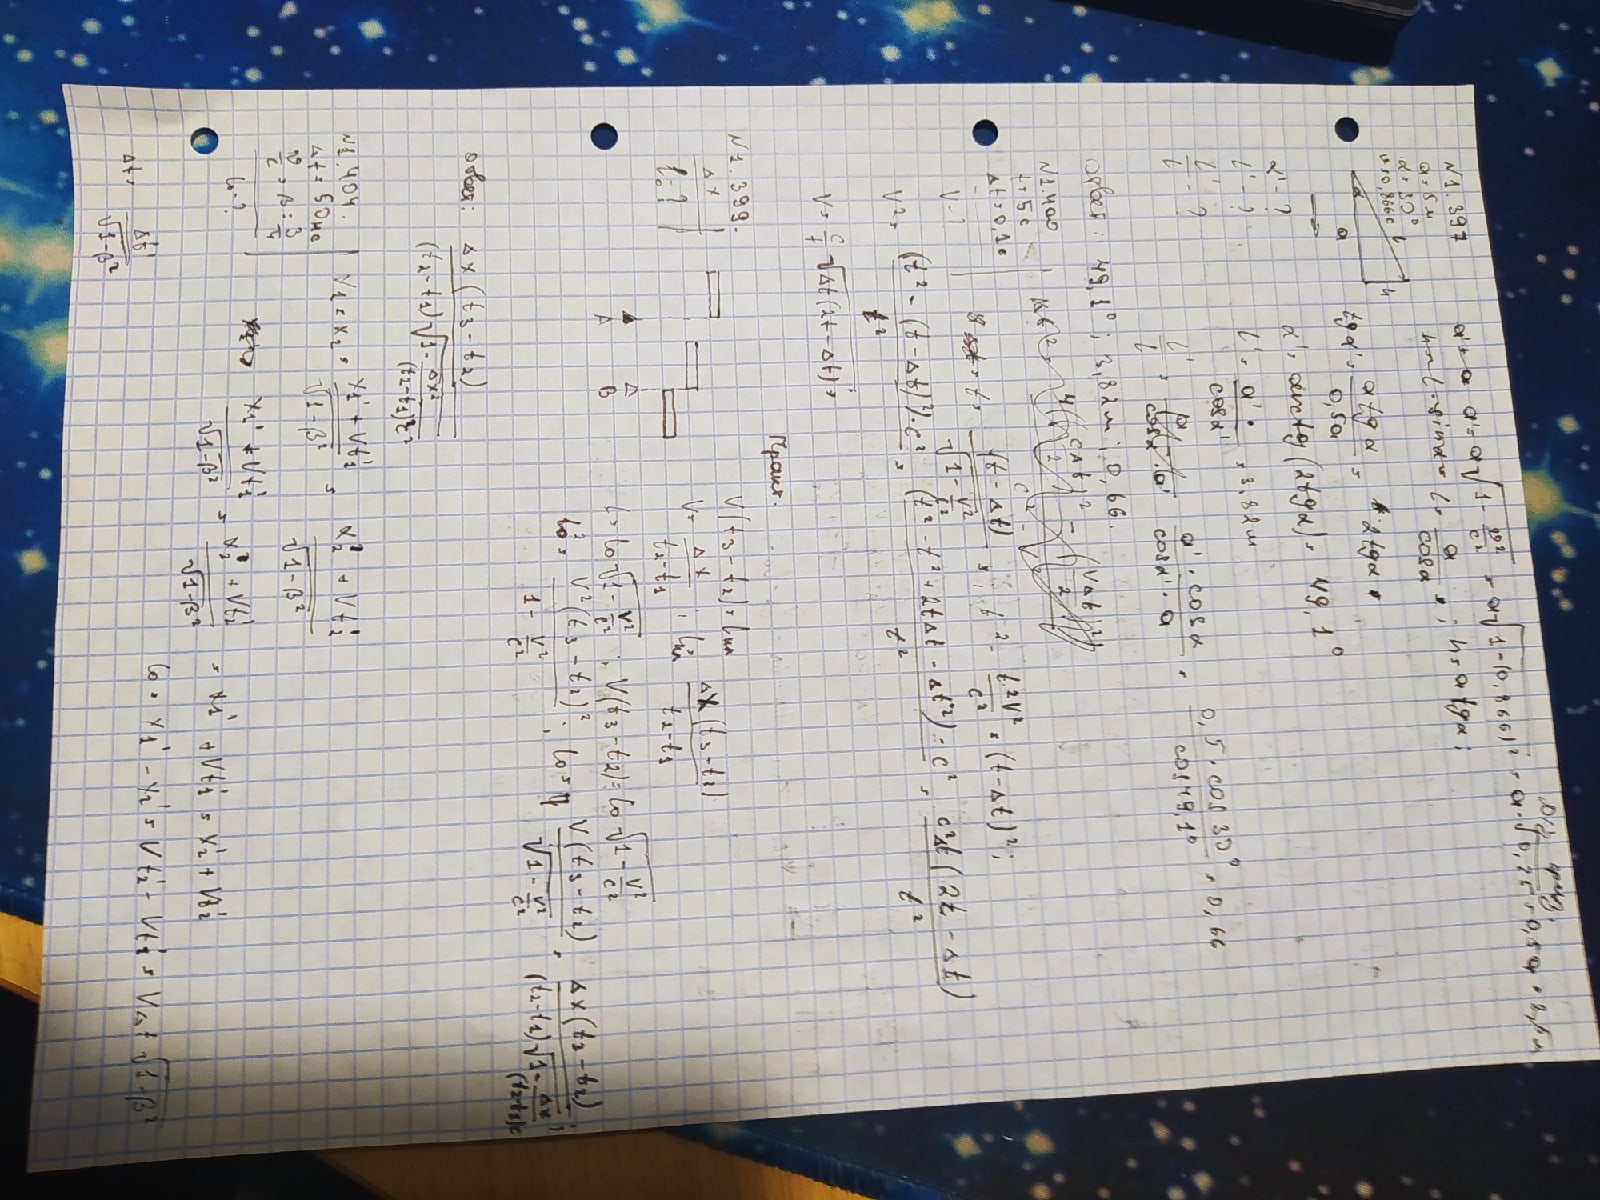 N1.397
a = 5 м
α = 30°
v = 0,866c
a' = a√(1 - v²/c²) = a√(1-(0,866)²) = a·√0,25 = 0,5a = 2,5 м
h = l·sinα = l = a/cosα ; h = a tgα;
l
h
α
a
tgα' = a tgα/0,5a = 2tgα
α' - ?
α' = arctg(2tgα) = 49,1°
l' - ?
l' = a'/cosα' = 3,82м
l'/l - ?
l'/l = a'·cosα/cosα'·a = 0,5·cos30°/cos49,1° = 0,66
Ответ: 49,1°; 3,82м; 0,66.
N1.400
t = 5 с
Δt = 0,1с
V - ?
t = (t - Δt)/√(1 - V²/c²) ; t² - t²V²/c² = (t-Δt)²;
V² = (t² - (t-Δt)²)·c²/t² = (t² - t² + 2tΔt - Δt²)·c²/t² = c²Δt(2t - Δt)/t²
V = c/t √Δt(2t-Δt) =
Практ.
N1.399.
Δx
l₀ - ?
A
B
V(t₃-t₂) = lил
V = Δx/t₂-t₁ ; lил = Δx(t₃-t₂)/t₂-t₁
l = l₀√(1 - V²/c²) ; V(t₃-t₂) = l₀√(1 - V²/c²)
l₀² = V²(t₃-t₂)²/1 - V²/c² ; l₀ = V(t₃-t₂)/√(1 - V²/c²) = Δx(t₃-t₂)/(t₂-t₁)√(1 - Δx/(t₂-t₁)c ;
Ответ: Δx(t₃-t₂)/(t₂-t₁)√(1 - Δx²/(t₂-t₁)²c²)
N1.404.
Δt = 50нс
v/c = β = 3/4
l₀ - ?
x₁ = x₂ = x₁' + Vt₁'/√(1-β²) = x₂' + Vt₂'/√(1-β²)
x₁' + Vt₁'/√(1-β²) = x₂' + Vt₂'/√(1-β²) = x₁' + Vt₁' = x₂' + Vt₂'
l₀ = x₁' - x₂' = Vt₂' - Vt₁' = VΔt√(1-β²)
Δt = Δt'/√(1-β²)